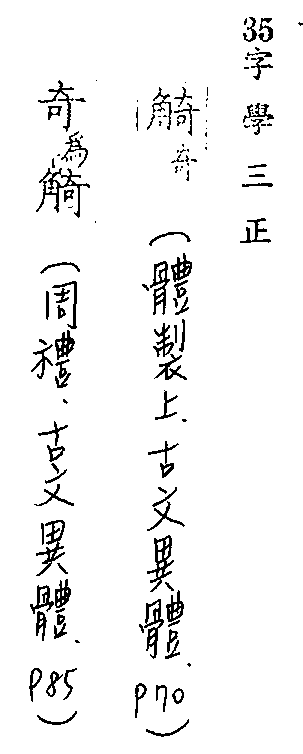 35字學三正
觭奇(體製上、古文異體、P70)
奇為觭(周禮、古文異體、P85)